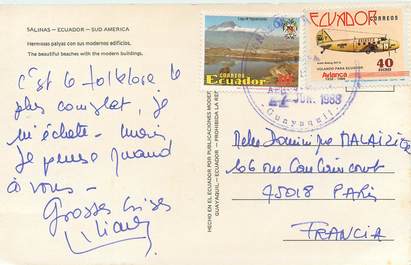 SALINAS - ECUADOR - SUD AMERICA
Hermosas playas con sus modernos edificios.
The beautiful beaches with the modern buildings.
c'est le folklore le
plus complet, je
m'éclate - mais
je pense quand
à vous -
Grosses bises
Liliane
HECHO EN ECUADOR POR PUBLICACIONES
GUAYAQUIL - ECUADOR - PROHIBIDA LA
CORREOS
Ecuador
ECUADOR
CORREOS
VOLANDO PARA ECUADOR
Avianca
40
SUCRES
JUN. 1988
Guayaquil
Melle Dominique MALAIZE
166 rue
75018 PARIS
FRANCIA